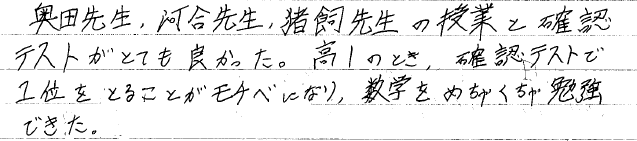 奥田先生，河合先生，猪飼先生の授業と確認
テストがとても良かった。高1のとき，確認テストで
1位をとることがモチベになり，数学をめちゃくちゃ勉強
できた。